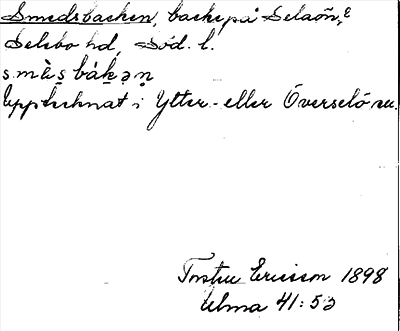 Smedsbacken, backe på Selaön,
Selebo hd, Söd. l.
smè̀s̱ bák̠ən̥
Upptecknat i Ytter- eller Överselö sn.
Torsten Ericsson 1898
Ulma 41:53